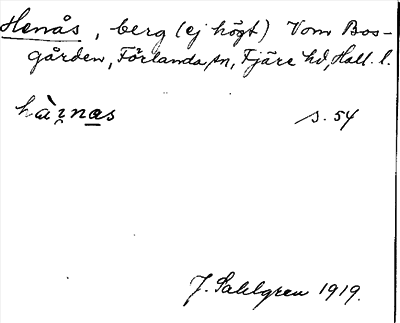 Henås, berg (ej högt) V om Bos-
gården, Förlanda sn, Fjäre hd, Hall. l.
hà̀ı̨nas s. 54
J. Sahlgren 1919.